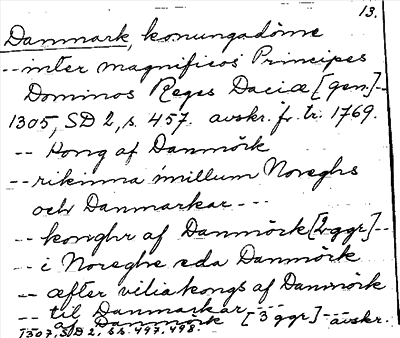 13.
Danmark, konungadöme
-- inter magnificos Principes
Dominos Reges Daciæ [gen.] --
1305, SD 2, s. 457. avskr. fr. tr. 1769.
-- Kong af Danmörk
-- rikinna millum Noreghs
och Danmarkar ---
-- konghr af Danmörk [2 ggr] --
-- i Noreghe eda Danmörk
-- æfter vilia kongs af Danmörk
-- til Danmarkar ---
-- af Danmörk [3 ggr] --- avskr.
1307, SD 2, s. 497, 498.